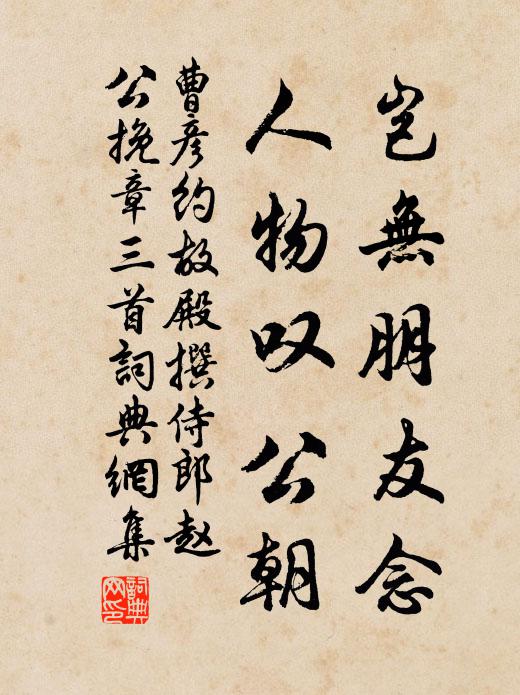 岂無朋友念
人物叹公朝
曹彦约故殿撰侍郎赵
公挽章三首詞典網集
詞典网印